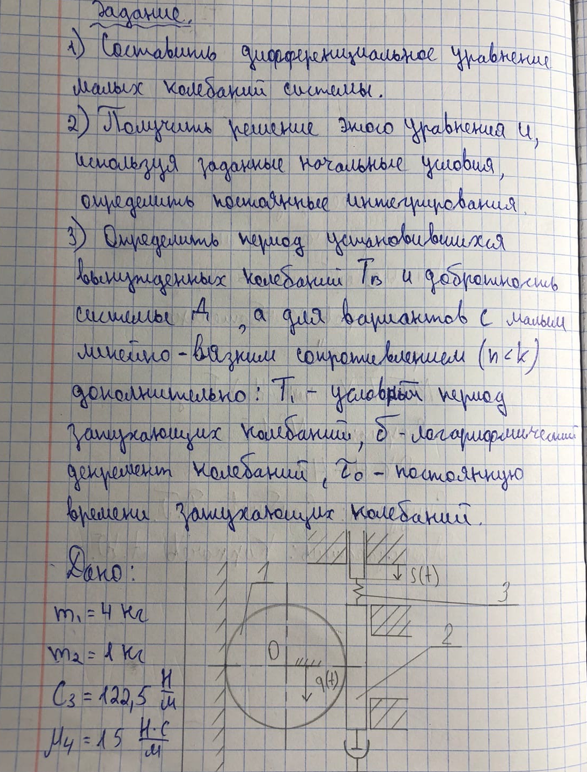 Задание.
1) Составить дифференциальное уравнение
малых колебаний системы.
2) Получить решение этого уравнения и,
используя заданные начальные условия,
определить постоянные интегрирования.
3) Определить период установившихся
вынужденных колебаний Tв и добротность
системы Д, а для вариантов с малым
линейно-вязким сопротивлением (n<k)
дополнительно: T₁ - условный период
затухающих колебаний, δ - логарифмический
декремент колебаний, τ₀ - постоянную
времени затухающих колебаний.
Дано:
m₁ = 4 кг
m₂ = 1 кг
C₃ = 122,5 Н/м
μ₄ = 15 Н·с/м
1
S(t)
3
O
2
q(t)